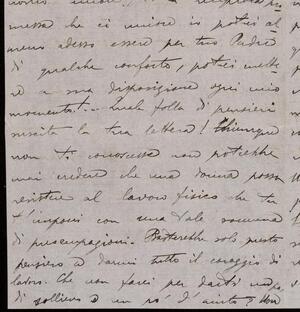 messa che ci unisce io potrei al
meno adesso essere per tuo Padre
di qualche conforto, potrei mette
re a sua disposizione ogni mio
momento! - Quale folla di pensieri
suscita la tua lettera! Chiunque
non ti conoscesse non potrebbe
mai credere che una donna possa
resistere al lavoro fisico che tu
t'imponi con una tale somma
di preoccupazioni. Basterebbe solo questo
pensiero a darmi tutto il coraggio di
lavoro. Che non farei per darti un po'
di sollievo e un po' d'aiuto! Non